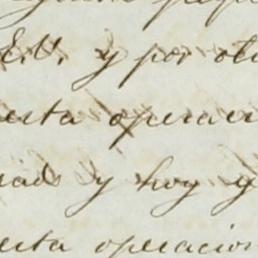 E.U. y por otr
esta operaci
idad y hoy y
esta operacion